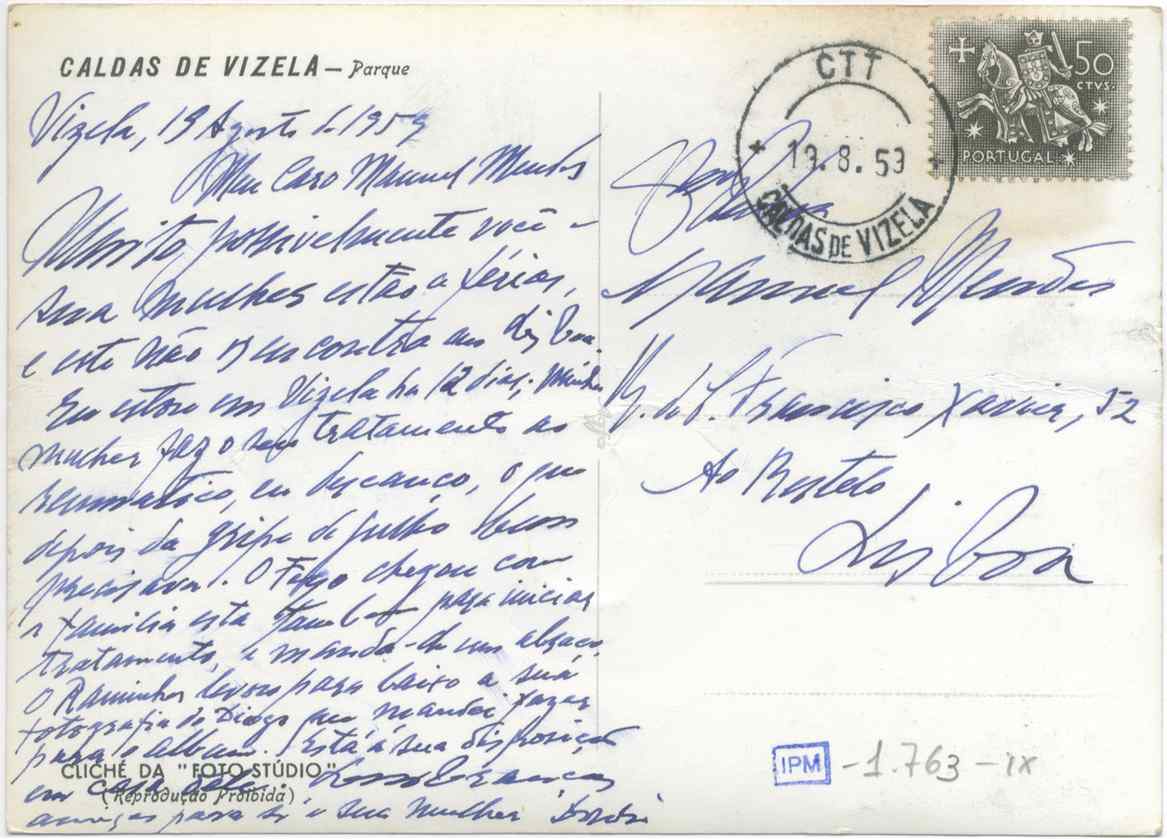 CALDAS DE VIZELA — Parque
Vizela, 19 Agosto de 1959
Meu Caro Manuel Mendes
Muito possivelmente você e
sua mulher estão a férias,
e este não os encontra em Lisboa.
Eu estou em Vizela ha 12 dias; minha
mulher faz o seu tratamento ao
reumático, eu descanço, o que
depois da gripe de julho bem
precisava. O chegou com
a familia esta para iniciar
tratamento, e manda-lhe um abraço.
O Raminhos levou para baixo a sua
fotografia do Diogo que mandei fazer
para o album. Está á sua disposição
em casa dele.
amigas para si e sua mulher
CLICHÉ DA "FOTO-STÚDIO"
(Reprodução Proibida)
CTT
19.8.59
CALDAS DE VIZELA
50
CTVS.
PORTUGAL
Manuel Mendes
R. de S. Francisco Xavier, 52
Ao Restelo
Lisboa
IPM -1.763-IX